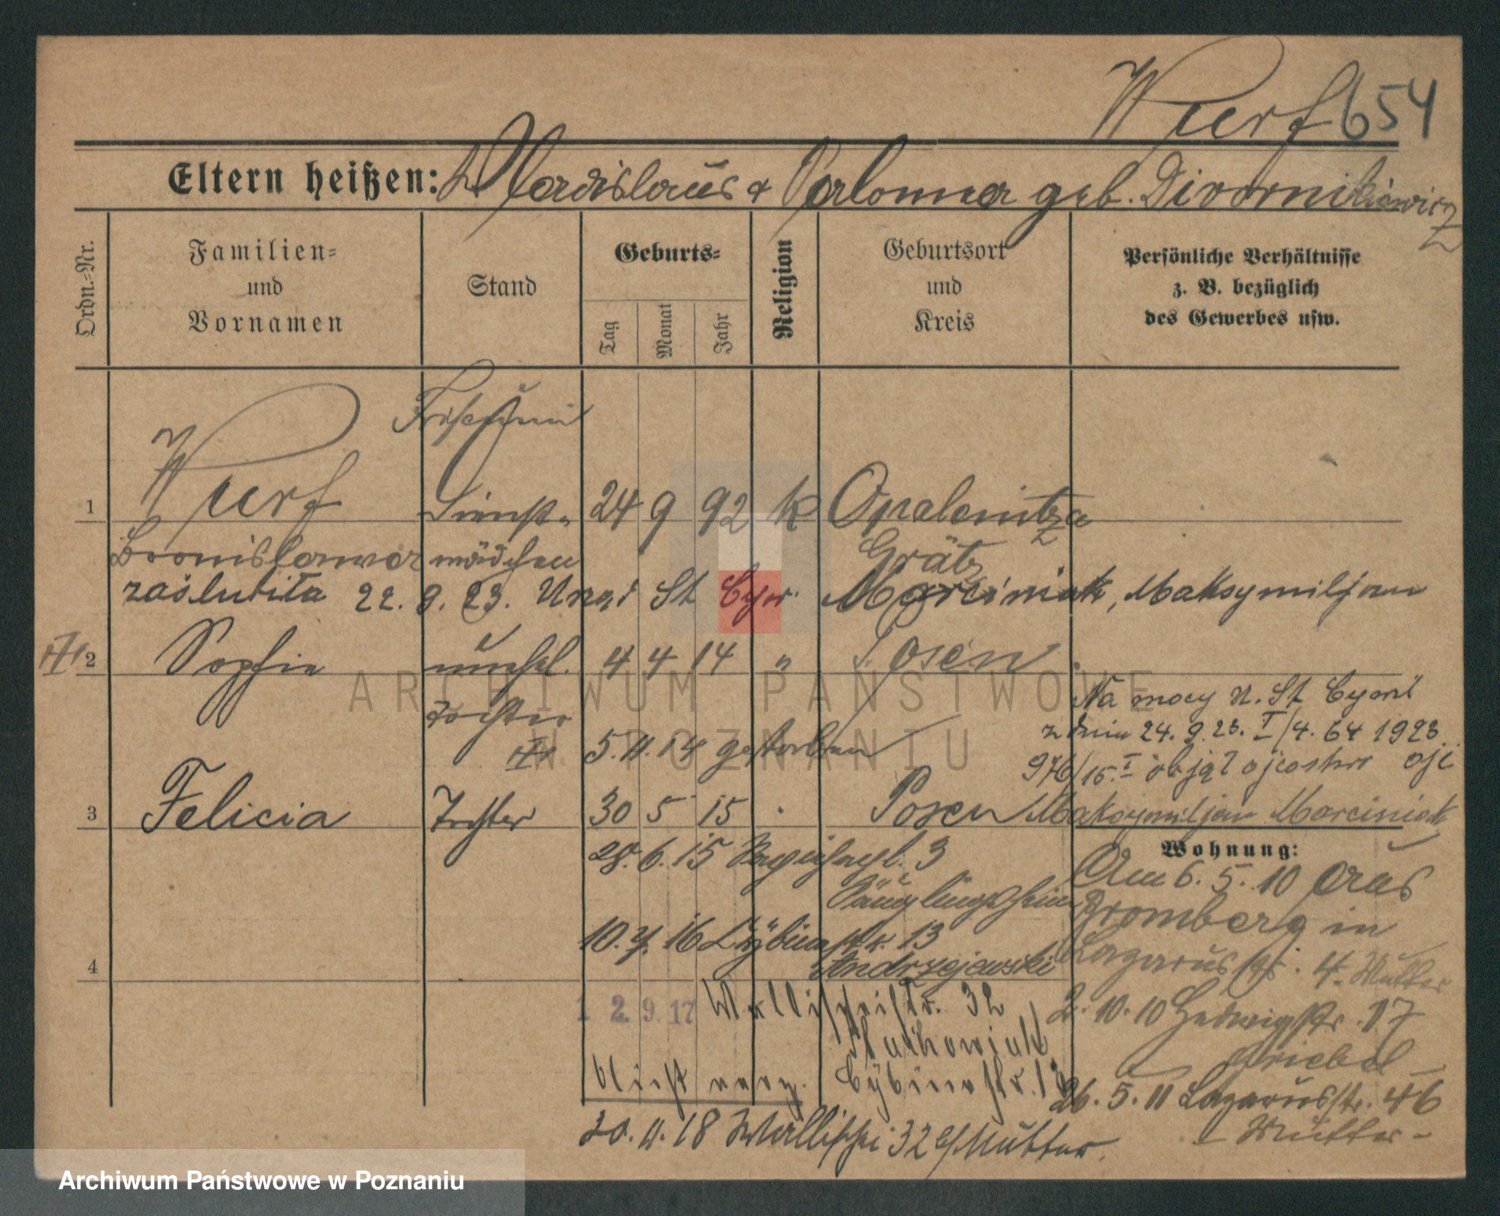 Wurf 654
Eltern heißen: Wladislaus & Palonnea geb. Divornikiewicz
Ordn.-Nr.
Familien-
und
Vornamen
Stand
Geburts-
Tag
Monat
Jahr
Religion
Geburtsort
und
Kreis
Persönliche Verhältnisse
z. B. bezüglich
des Gewerbes usw.
1 Wurf Dienst- 24 9 92 k Opalenitza
Bronislawa mädchen Grätz
zaślubiła 22. 9. 23. Urząd St Cyw. Marciniak, Maksymiljan
2 Sophie unehel. 4 4 14 " Posen
Tochter
5. 11. 14 gestorben
Na mocy U. St Cywil
z dnia 24. 9. 23. I/4. 64 1923
976/15. I objął ojcostwo
3 Felicia Tochter 30 5 15 Posen
Maksymiljan Marciniak
Wohnung:
28. 6. 15 3
Säuglingsheim
10. 16 Cybinastr. 13
Andrzejewski
4
12. 9. 17 Wallischeistr. 32
Nicht verz. Cybinastr. 13
20. 11. 18 Wallischei 32 b/Mutter.
Am 6. 5. 10 aus
Bromberg in
Lazarusstr. 4. Mutter
2. 10. 10 Hedwigstr. 17
26. 5. 11 Lazarusstr. 46
- Mutter -
ARCHIWUM PAŃSTWOWE
W POZNANIU
Archiwum Państwowe w Poznaniu